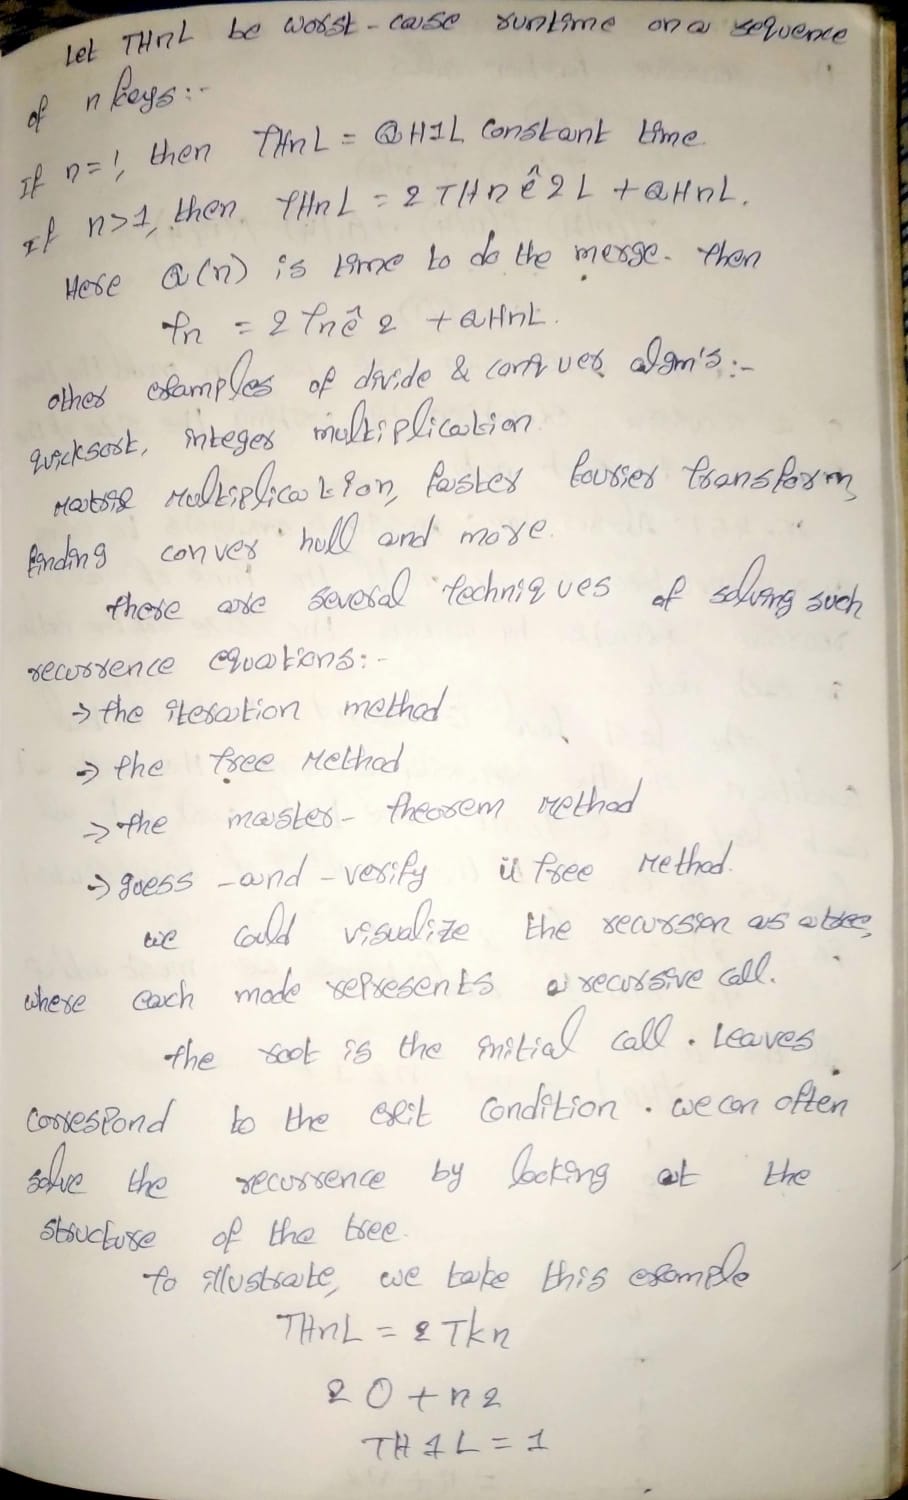 Let THnL be worst-case runtime on a sequence
of n keys:-
If n=1, then THnL = QH1L constant time.
If n>1, then THnL = 2 THn ê 2 L + QHnL.
Here Q(n) is time to do the merge. Then
Tn = 2 Tn ê 2 + QHnL.
other examples of divide & conquer algm's:-
quicksort, integer multiplication.
Matrix Multiplication, faster fourier transform,
finding convex hull and more.
There are several techniques of solving such
recurrence equations:-
→ the iteration method
→ the tree Method
→ the master-theorem method
→ guess-and-verify ü tree Method.
we could visualize the recursion as a tree,
where each mode represents a recursive call.
The root is the initial call. Leaves
correspond to the exit condition. we can often
solve the recurrence by looking at the
structure of the tree.
To illustrate, we take this example
THnL = 2 Tkn
2 O + n 2
TH1L = 1